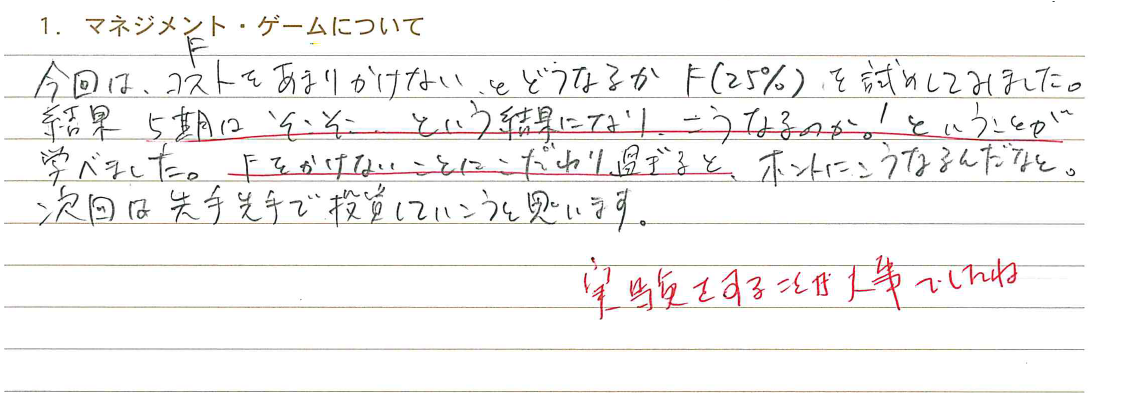 1. マネジメント・ゲームについて
F
今回は、コストをあまりかけない、とどうなるか F(25%)、を試めしてみました。
結果 5期は そこそこ… という結果になり、こうなるのか。!ということが
学べました。Fをかけないことにこだわり過ぎると、ホントにこうなるんだなと。
次回は先手先手で投資していこうと思います。
実験をすることが大事でしたね